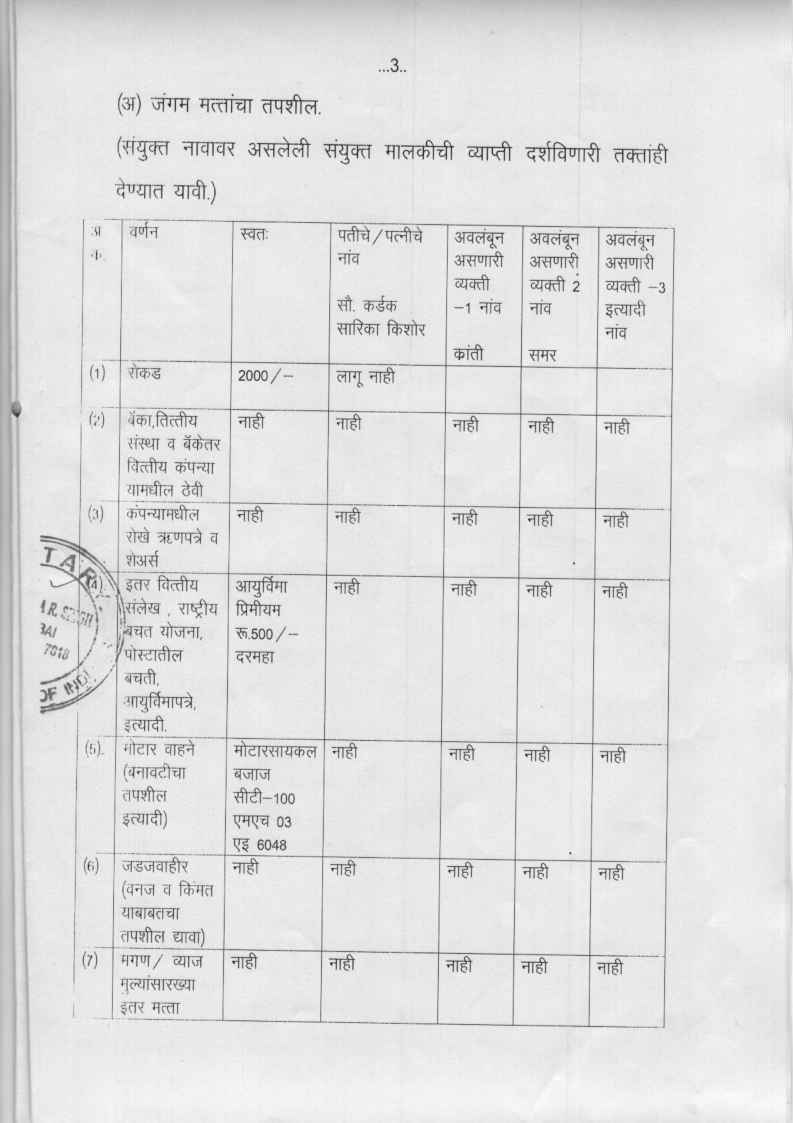 ...3..
(अ) जंगम मत्तांचा तपशील.
(संयुक्त नावावर असलेली संयुक्त मालकीची व्याप्ती दर्शविणारी तक्तांही
देण्यात यावी.)
अ
क.
वर्णन
स्वतः
पतीचे/पत्नीचे
नांव
सौ. कर्डक
सारिका किशोर
अवलंबून
असणारी
व्यक्ती
–1 नांव
कांती
अवलंबून
असणारी
व्यक्ती 2
नांव
समर
अवलंबून
असणारी
व्यक्ती –3
इत्यादी
नांव
(1) रोकड 2000/– लागू नाही
(2) बॅंका,तित्तीय नाही नाही नाही नाही नाही
संस्था व बॅकेतर
वित्तीय कंपन्या
यामधील ठेवी
(3) कंपन्यामधील नाही नाही नाही नाही नाही
रोखे ऋणपत्रे व
शेअर्स
(4) इतर वित्तीय आयुर्विमा नाही नाही नाही नाही
संलेख , राष्ट्रीय प्रिमीयम
बचत योजना, रू.500/–
पोस्टातील दरमहा
बचती,
आयुर्विमापत्रे,
इत्यादी.
(5). मोटार वाहने मोटारसायकल नाही नाही नाही नाही
(बनावटीचा बजाज
तपशील सीटी–100
इत्यादी) एमएच 03
एइ 6048
(6) जडजवाहीर नाही नाही नाही नाही नाही
(वनज व किंमत
याबाबतचा
तपशील द्यावा)
(7) मगण/ व्याज नाही नाही नाही नाही नाही
मुल्यांसारख्या
इतर मत्ता
TAR
BAI
7018
OF INDI